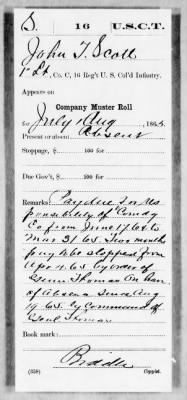 S. 16 U.S.C.T.
John T. Scott
1" Lt., Co. C, 16 Reg't U. S. Col'd Infantry.
Appears on
Company Muster Roll
for July & Aug, 1865.
Present or absent Absent
Stoppage, $ 100 for
Due Gov't, $ 100 for
Remarks: Pay due for Res
ponsibility of Comdg
Co from June 17.64 to
Mar 31.65. Two months
pay to be stopped from
Apr 4.65 by order of
Genl Thomas On acc.
of Absence since Aug
19.65. by Command of
Genl Thomas
Book mark:
Biddle
(358) Copyist.